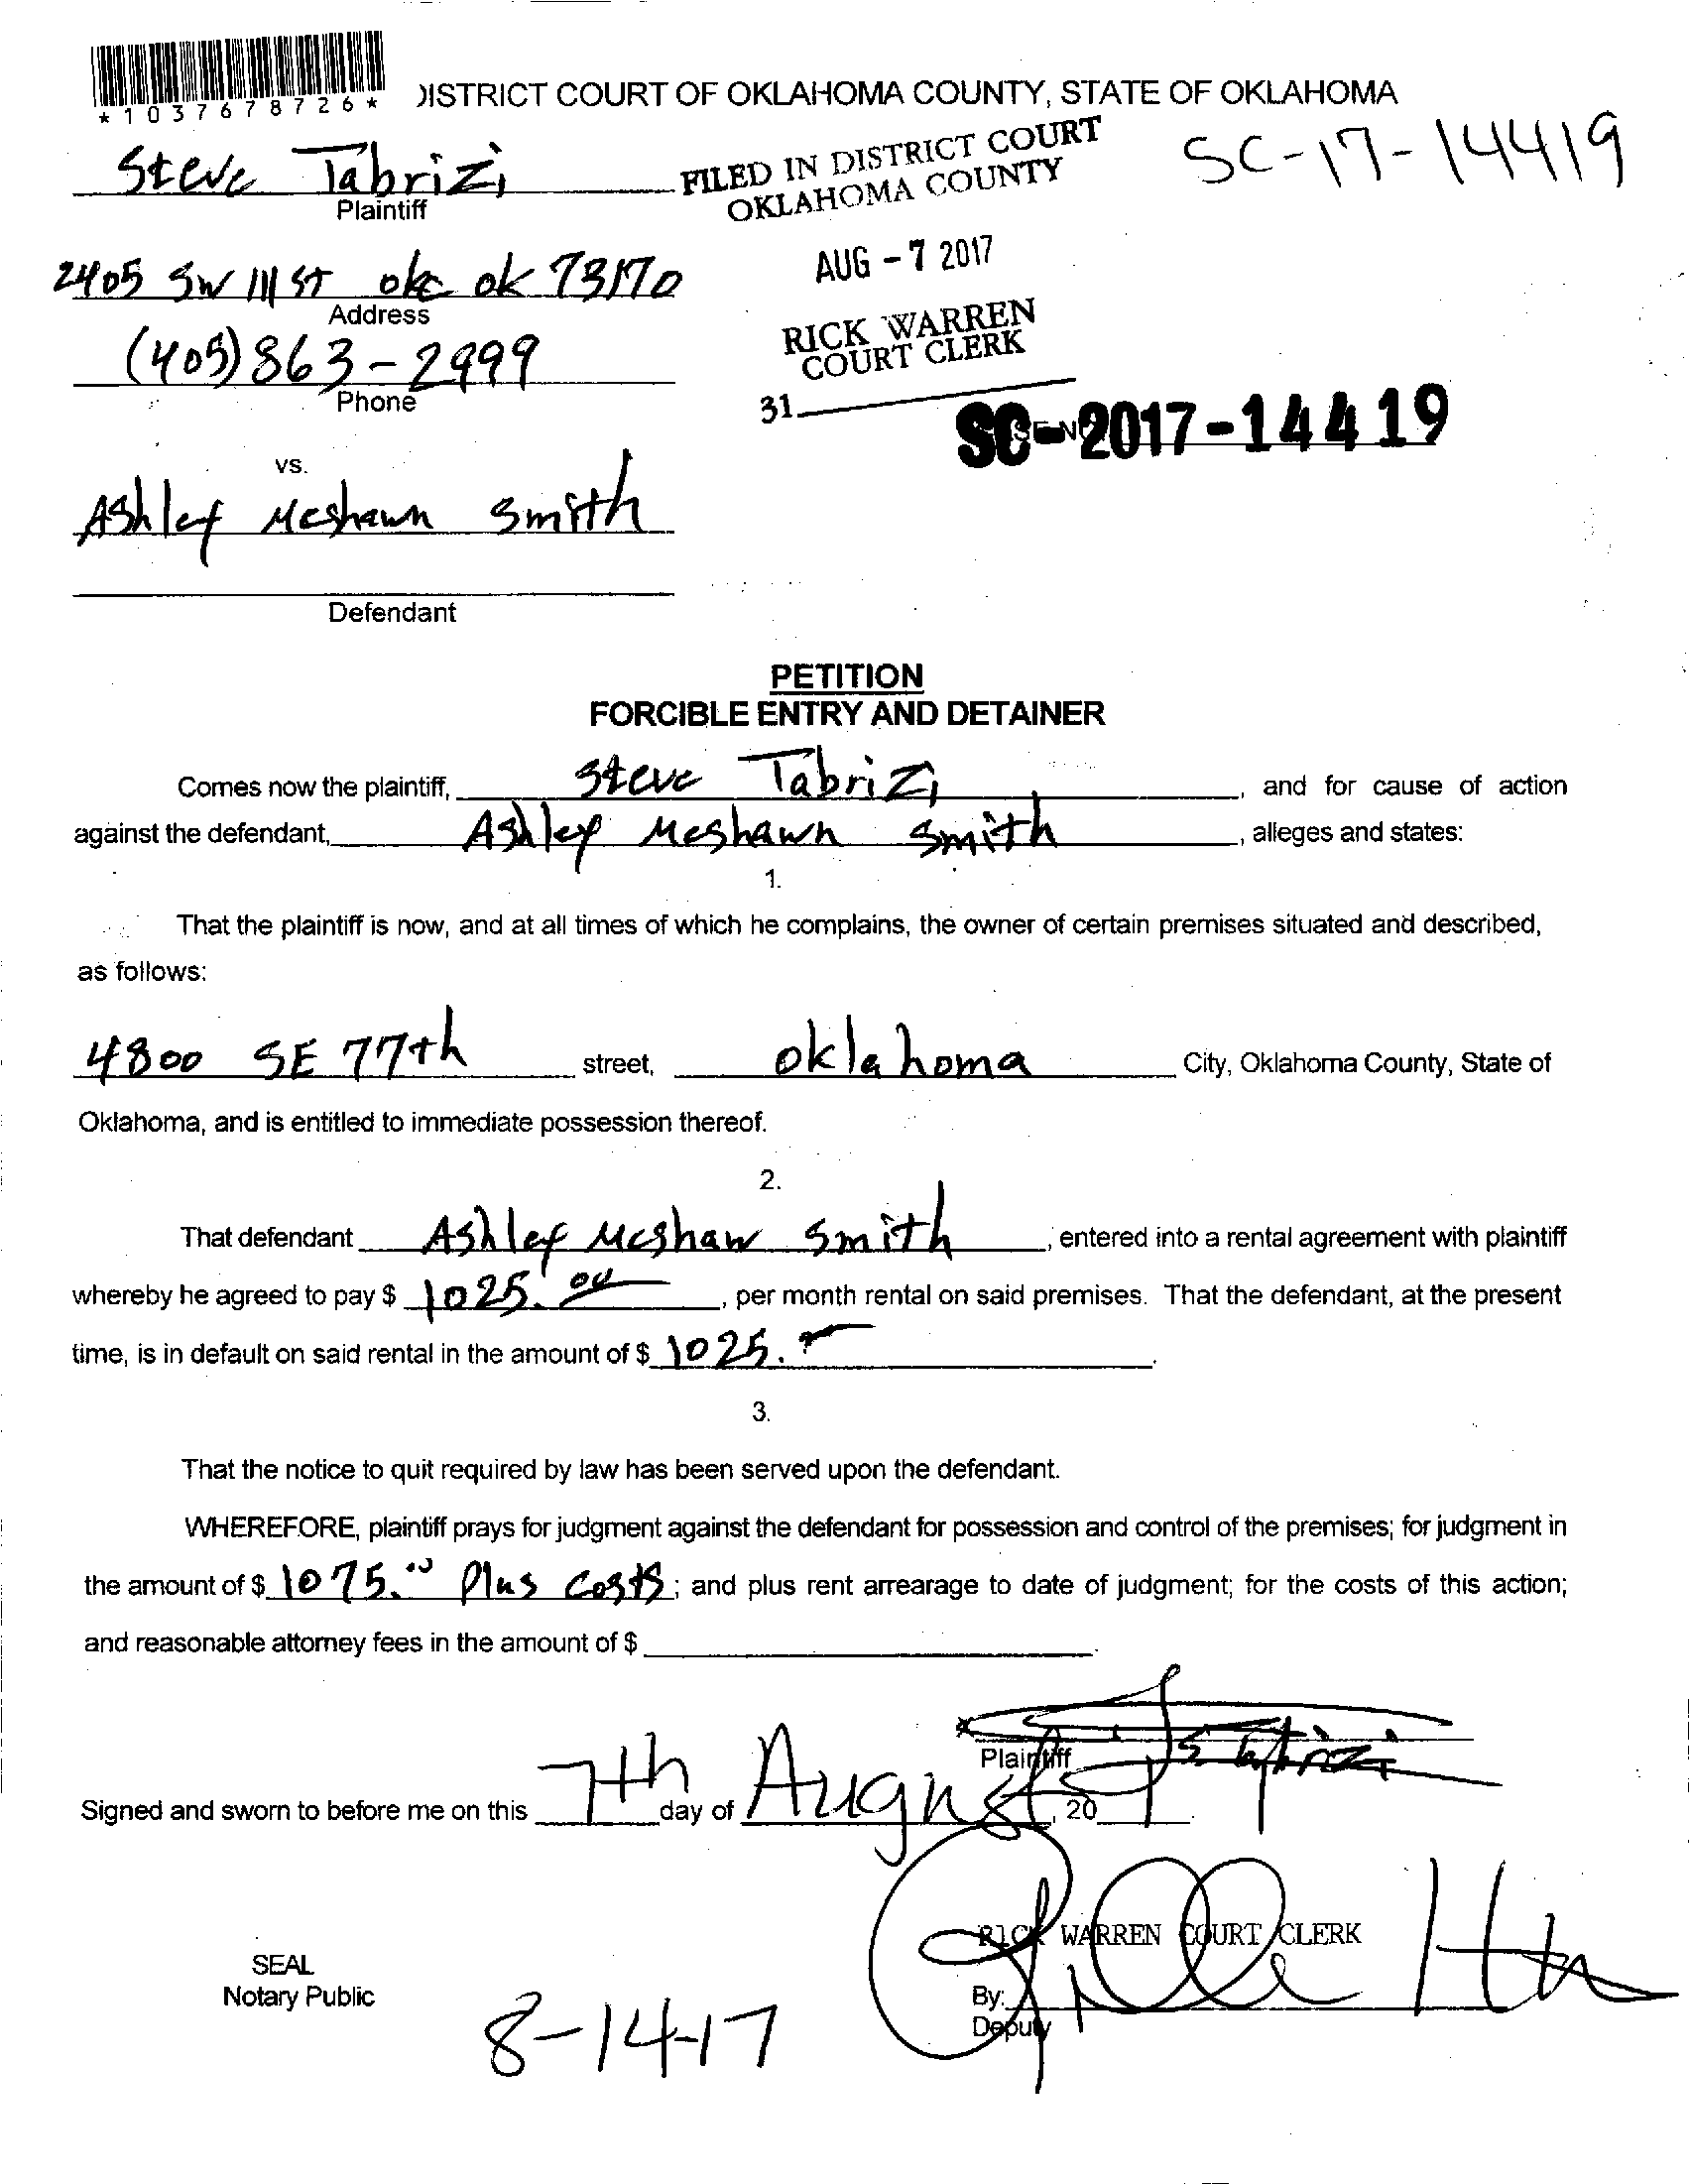 *1037678726*
DISTRICT COURT OF OKLAHOMA COUNTY, STATE OF OKLAHOMA
SC-17-14419
FILED IN DISTRICT COURT
OKLAHOMA COUNTY
Steve Tabrizi
Plaintiff
AUG - 7 2017
2405 SW 111 ST okc ok 73170
Address
RICK WARREN
COURT CLERK
(405) 863-2999
Phone
31
SC-2017-14419
vs.
Ashley Meshawn Smith
Defendant
PETITION
FORCIBLE ENTRY AND DETAINER
Comes now the plaintiff, Steve Tabrizi, and for cause of action
against the defendant, Ashley Meshawn Smith, alleges and states:
1.
That the plaintiff is now, and at all times of which he complains, the owner of certain premises situated and described,
as follows:
4800 SE 77th street, oklahoma City, Oklahoma County, State of
Oklahoma, and is entitled to immediate possession thereof.
2.
That defendant Ashley Meshaw Smith, entered into a rental agreement with plaintiff
whereby he agreed to pay $ 1025.00, per month rental on said premises. That the defendant, at the present
time, is in default on said rental in the amount of $ 1025.
3.
That the notice to quit required by law has been served upon the defendant.
WHEREFORE, plaintiff prays for judgment against the defendant for possession and control of the premises; for judgment in
the amount of $ 1075.00 Plus Costs; and plus rent arrearage to date of judgment; for the costs of this action;
and reasonable attorney fees in the amount of $
Plaintiff
Signed and sworn to before me on this 7th day of August, 20
RICK WARREN COURT CLERK
SEAL
Notary Public
By:
Deputy
8-14-17